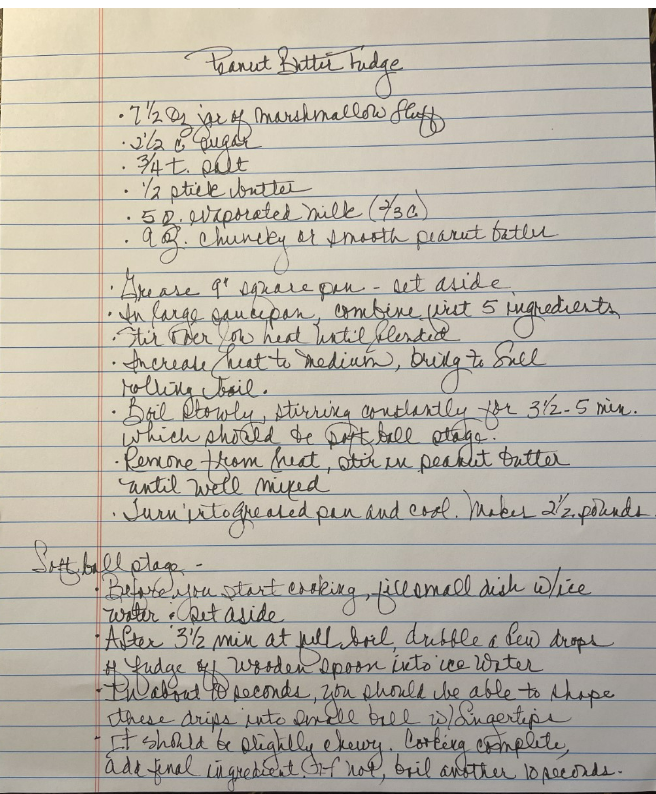 Peanut Butter Fudge
· 7 1/2 oz jar of Marshmallow fluff
· 2 1/2 c sugar
· 3/4 t. salt
· 1/2 stick butter
· 5 oz. evaporated milk (2/3 c)
· 9 oz. chuncky or smooth peanut butter
· Grease 9" square pan - set aside
· In large saucepan, combine first 5 ingredients
· Stir over low heat until blended
· Increase heat to medium, bring to full
rolling boil.
· Boil slowly, stirring constantly for 3 1/2 - 5 min.
which should be soft ball stage.
· Remove from heat, stir in peanut butter
until well mixed
· Turn into greased pan and cool. Makes 2 1/2 pounds
Soft ball stage -
· Before you start cooking, fill small dish w/ice
water & set aside
· After 3 1/2 min at full boil dribble a few drops
of fudge off wooden spoon into ice water
· In about 10 seconds, you should be able to shape
these drips into small ball w/fingertips
· It should be slightly chewy. Cooking complete,
add final ingredient. If not, boil another 10 seconds.